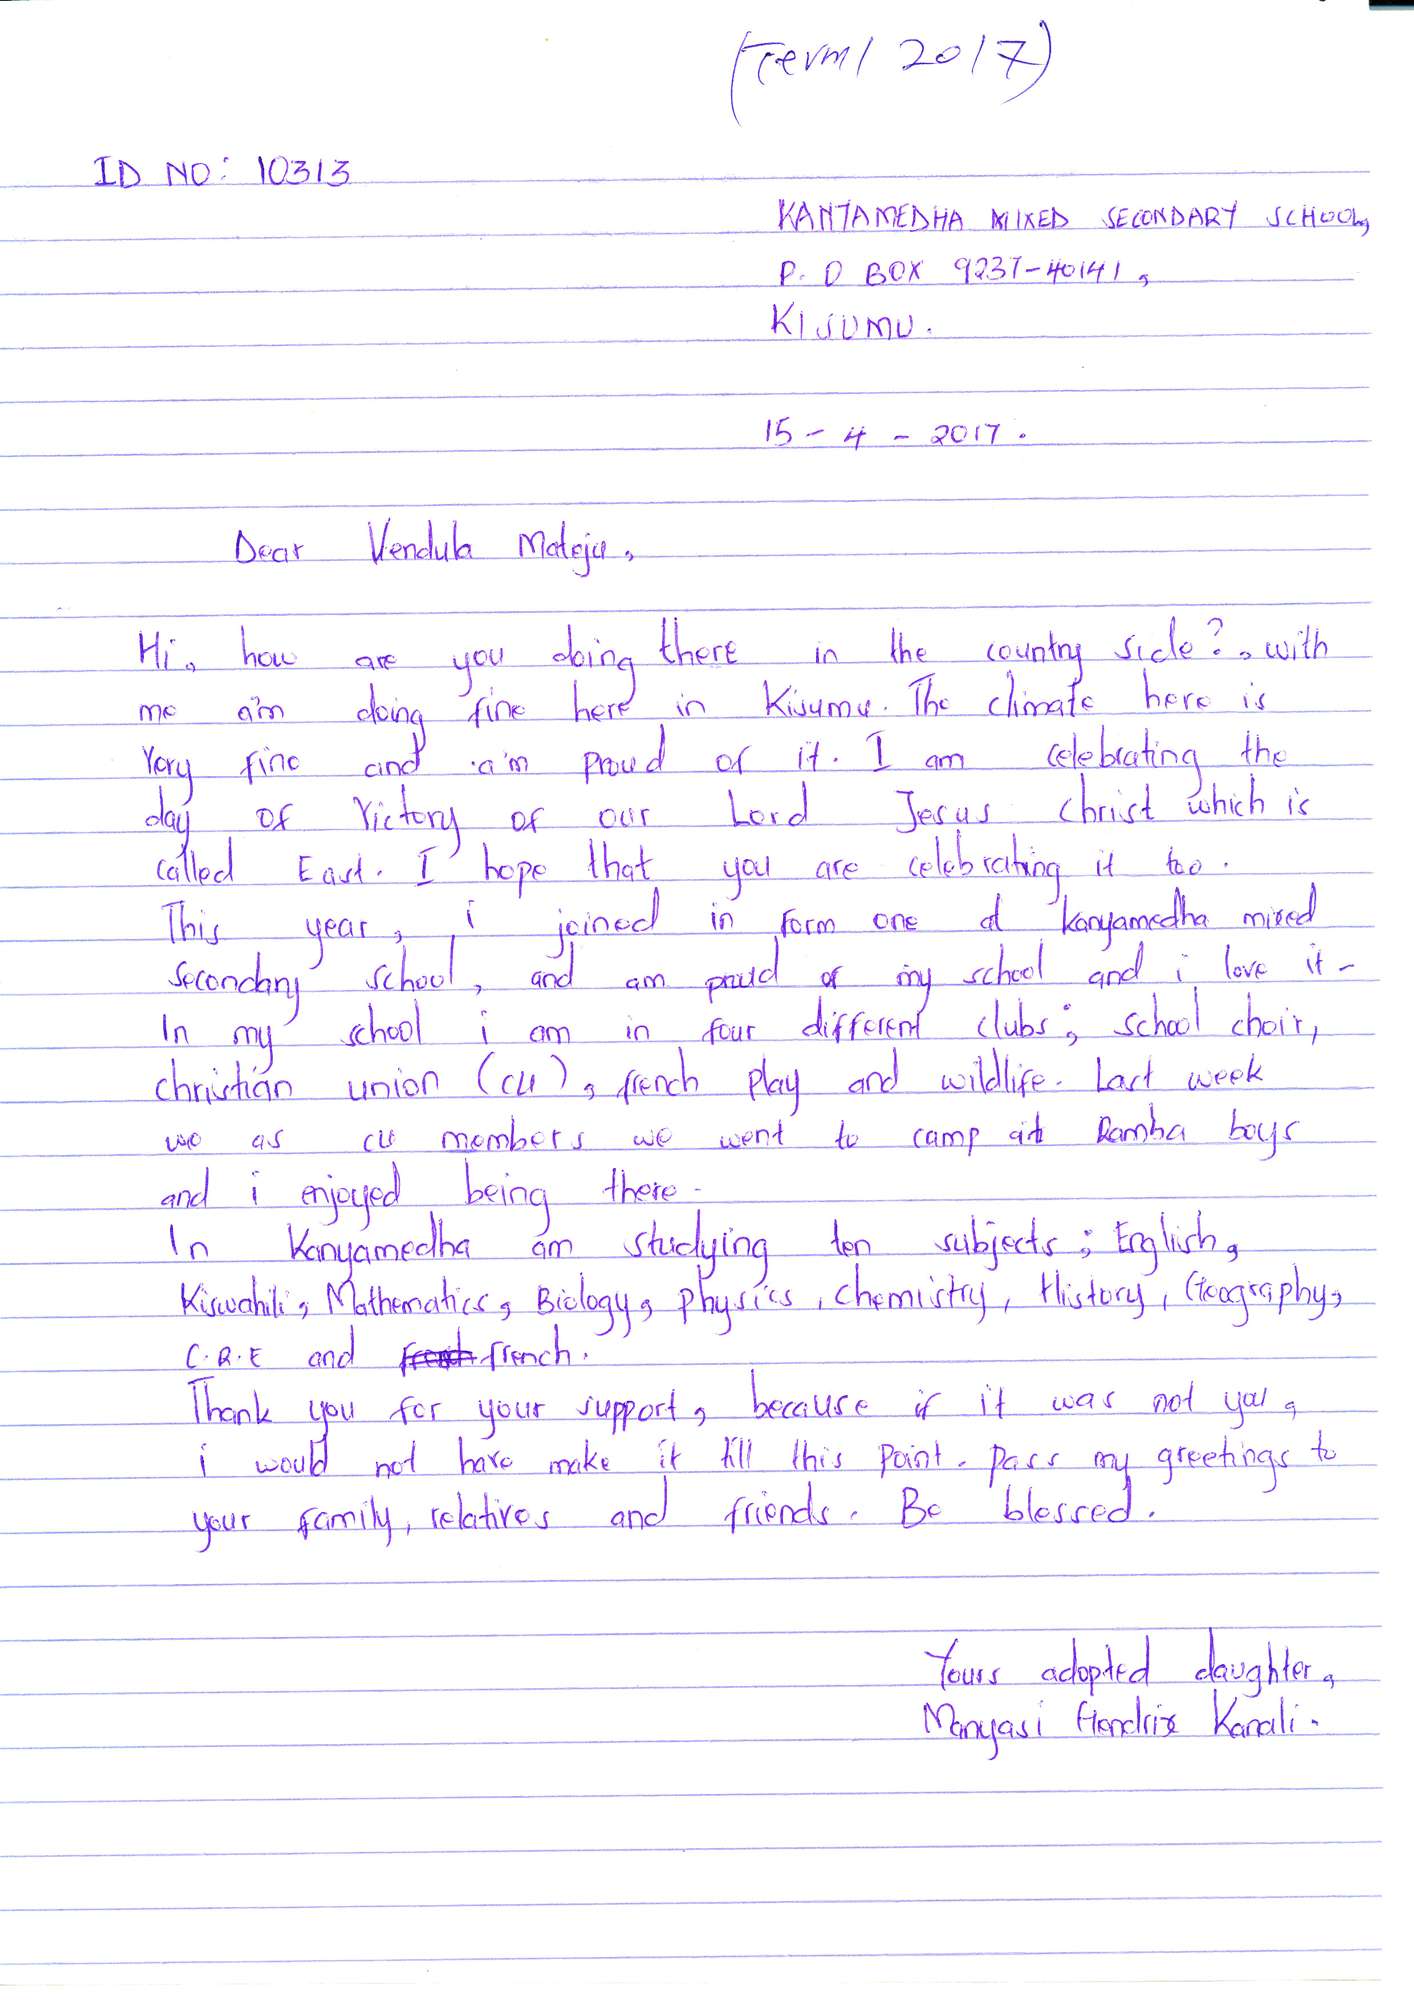 (Term 1 2017)
ID NO: 10313
KANYAMEDHA MIXED SECONDARY SCHOOL,
P. O BOX 9237-40141,
KISUMU.
15 - 4 - 2017.
Dear Vendula Mateju,
Hi, how are you doing there in the country side?, with
me a'm doing fine here in Kisumu. The climate here is
very fine and a'm proud of it. I am celebrating the
day of victory of our Lord Jesus Christ which is
called East. I hope that you are celebrating it too.
This year, i joined in form one at Kanyamedha mixed
secondary school, and am proud of my school and i love it-
In my school i am in four different clubs; school choir,
christian union (cu), french play and wildlife. Last week
we as cu members we went to camp at Ramba boys
and i enjoyed being there-
In Kanyamedha am studying ten subjects; English,
Kiswahili, Mathematics, Biology, physics, chemistry, History, Geography,
C.R.E and french french.
Thank you for your support, because if it was not you,
i would not have make it till this point. pass my greetings to
your family, relatives and friends. Be blessed.
Yours adopted daughter,
Manyasi Hendrix Kanali.